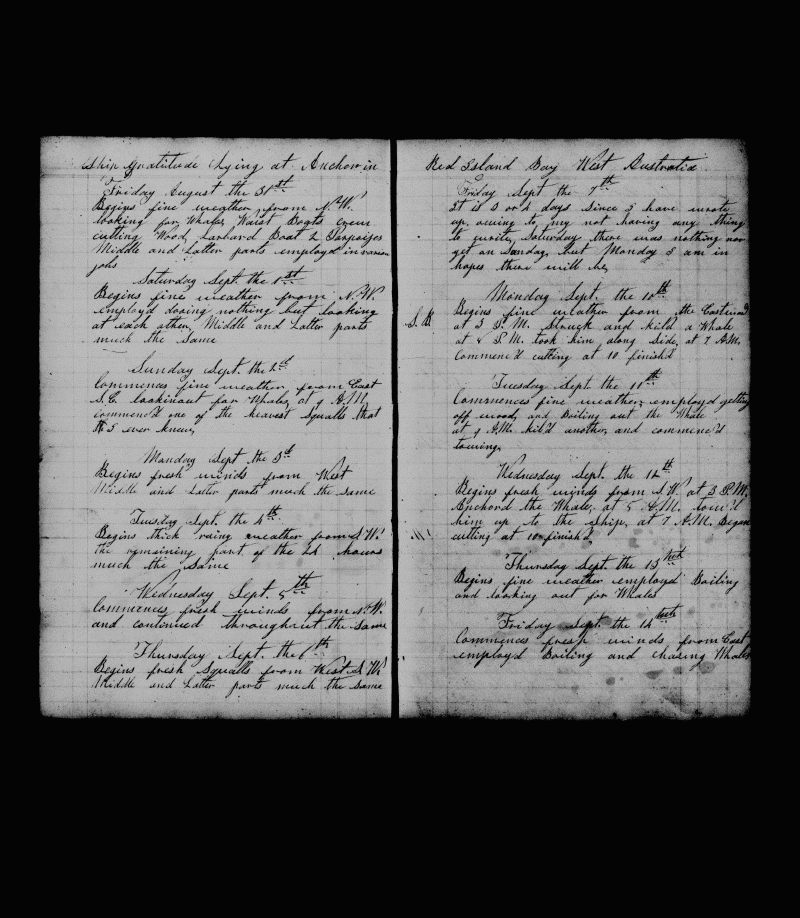 Ship Gratitude Lying at Anchor in
Friday August the 31st
Begins fine weather, from N.W.
looking for Whales, Waist Boats crew
cutting Wood, Larboard Boat 2 Porpoises
Middle and Latter parts employd in
jobs
Saturday Sept. the 1st
Begins fine weather from N.W.
employd doing nothing but looking
at each other, Middle and Latter parts
much the Same
Sunday Sept. the 2d
Commences fine weather, from East
S.E. lookinout for Whales, at 9 A.M.
commenc'd one of the heavest Squalls that
I ever knew,
Monday Sept the 3d
Begins fresh winds from West
Middle and Latter parts much the same
Tuesday Sept. the 4th
Begins thick rainy weather from S.W.
the remaining part of the 24 hours
much the Same
Wednesday Sept. 5th
Commences fresh winds from W.
and continued throughout the same
Thursday Sept. the 6th
Begins fresh Squalls from West S.W.
Middle and Latter parts much the same
Red Island Bay West Australia
Friday Sept the 7th
It is 3 or 4 days since I have wrote
up, owing to my not having any thing
to write, Saturday there was nothing nor
yet on Sunday, but Monday I am in
hopes there will be,
Monday Sept. the 10th
Begins fine weather from the Eastward
S.B. at 3 P.M. Struck and kild a Whale
at 8 P.M. took him along Side, at 7 A.M.
Commenc'd cutting at 10 finish'd
Tuesday Sept. the 11th
Commences fine weather, employd getting
off wood, and Boiling out the Whale
at 9 A.M. kil'd another, and commenc'd
towing,
Wednesday Sept. the 12th
Begins fresh winds from S.W. at 3 P.M.
Anchord the Whale, at 5 A.M. tow'd
him up to the Ship, at 7 A.M. Began
cutting at 10 finish'd
Thursday Sept. the 13
Begins fine weather employd Boiling
and looking out for Whales
Friday Sept. the 14
Commences fresh winds from East
employd Boiling and chasing Whales